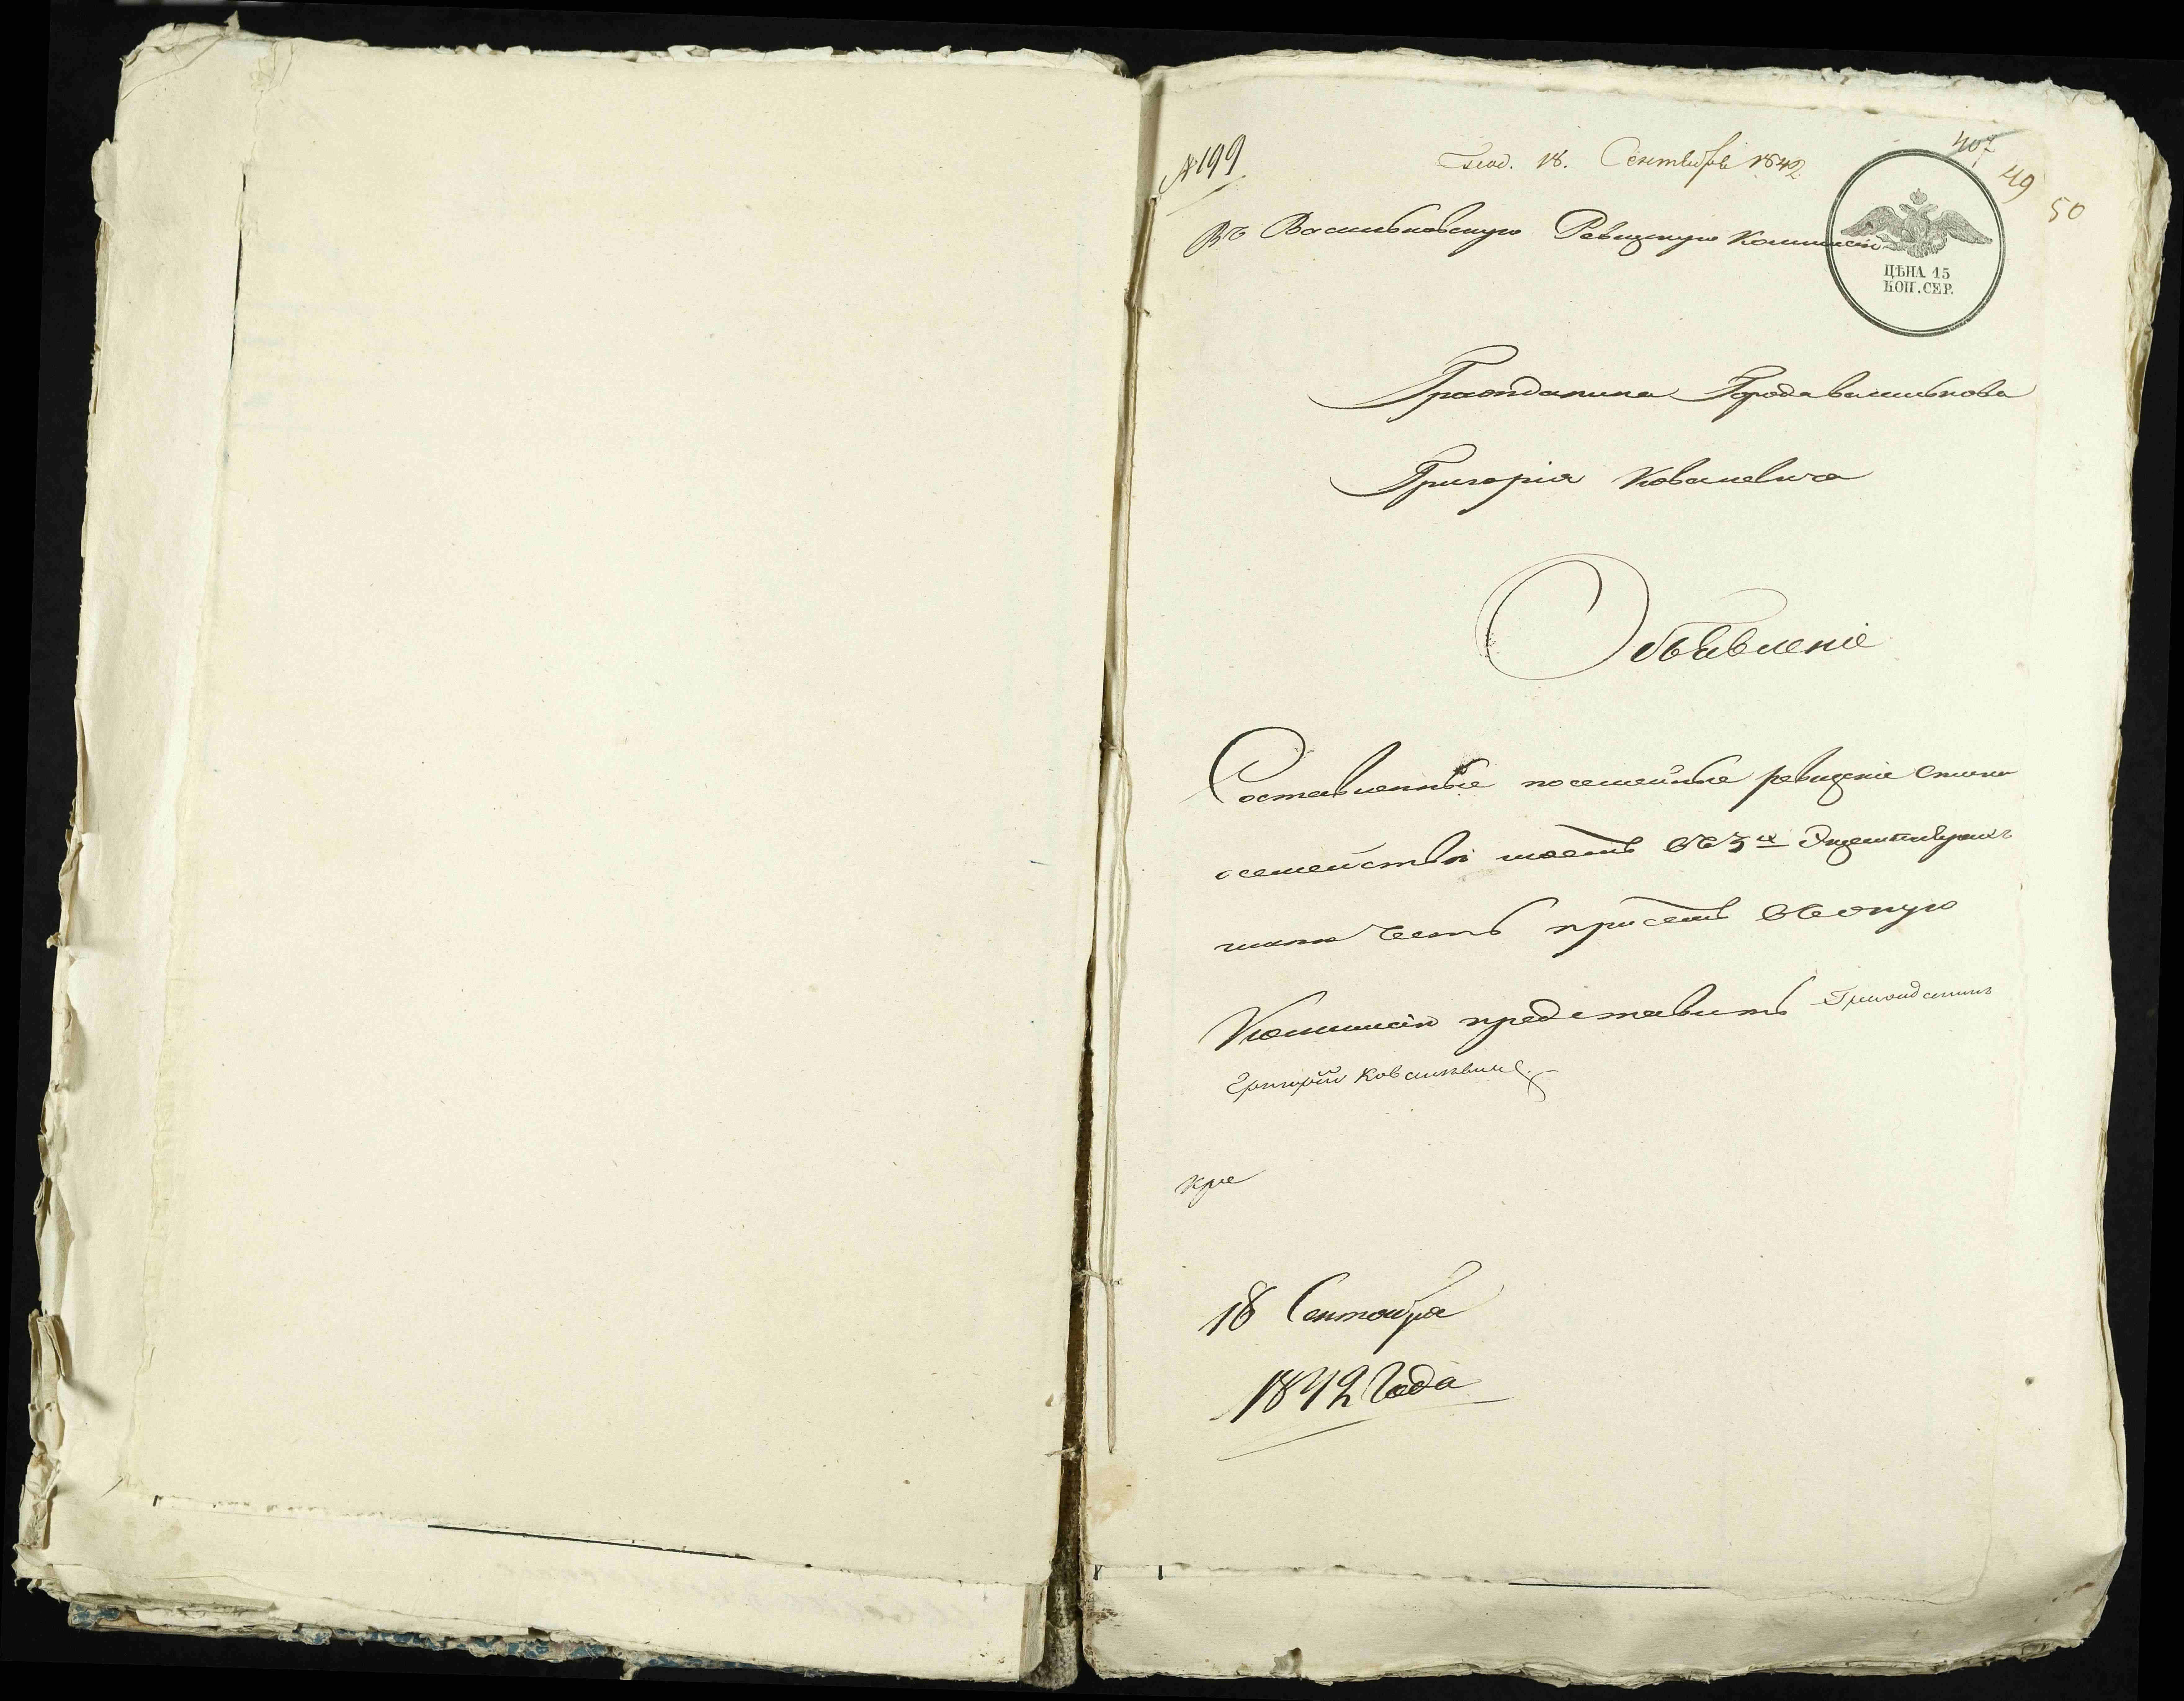 № 199
18. Сентября 1842
407
49
50
Въ Васильковскую Ревизкую Коммисію
ЦѢНА 15
КОП. СЕР.
Гражданина Города василькова
Григорія Ковалевича
Объявленіе
Составленные посемейные ревизкіе
семейства моемъ въ 3х Экземплярахъ
имѣю честь при семъ въ оную
Коммисію представить Гражданинъ
Григорій Ковалевичъ
18 Сентября
1842 Года